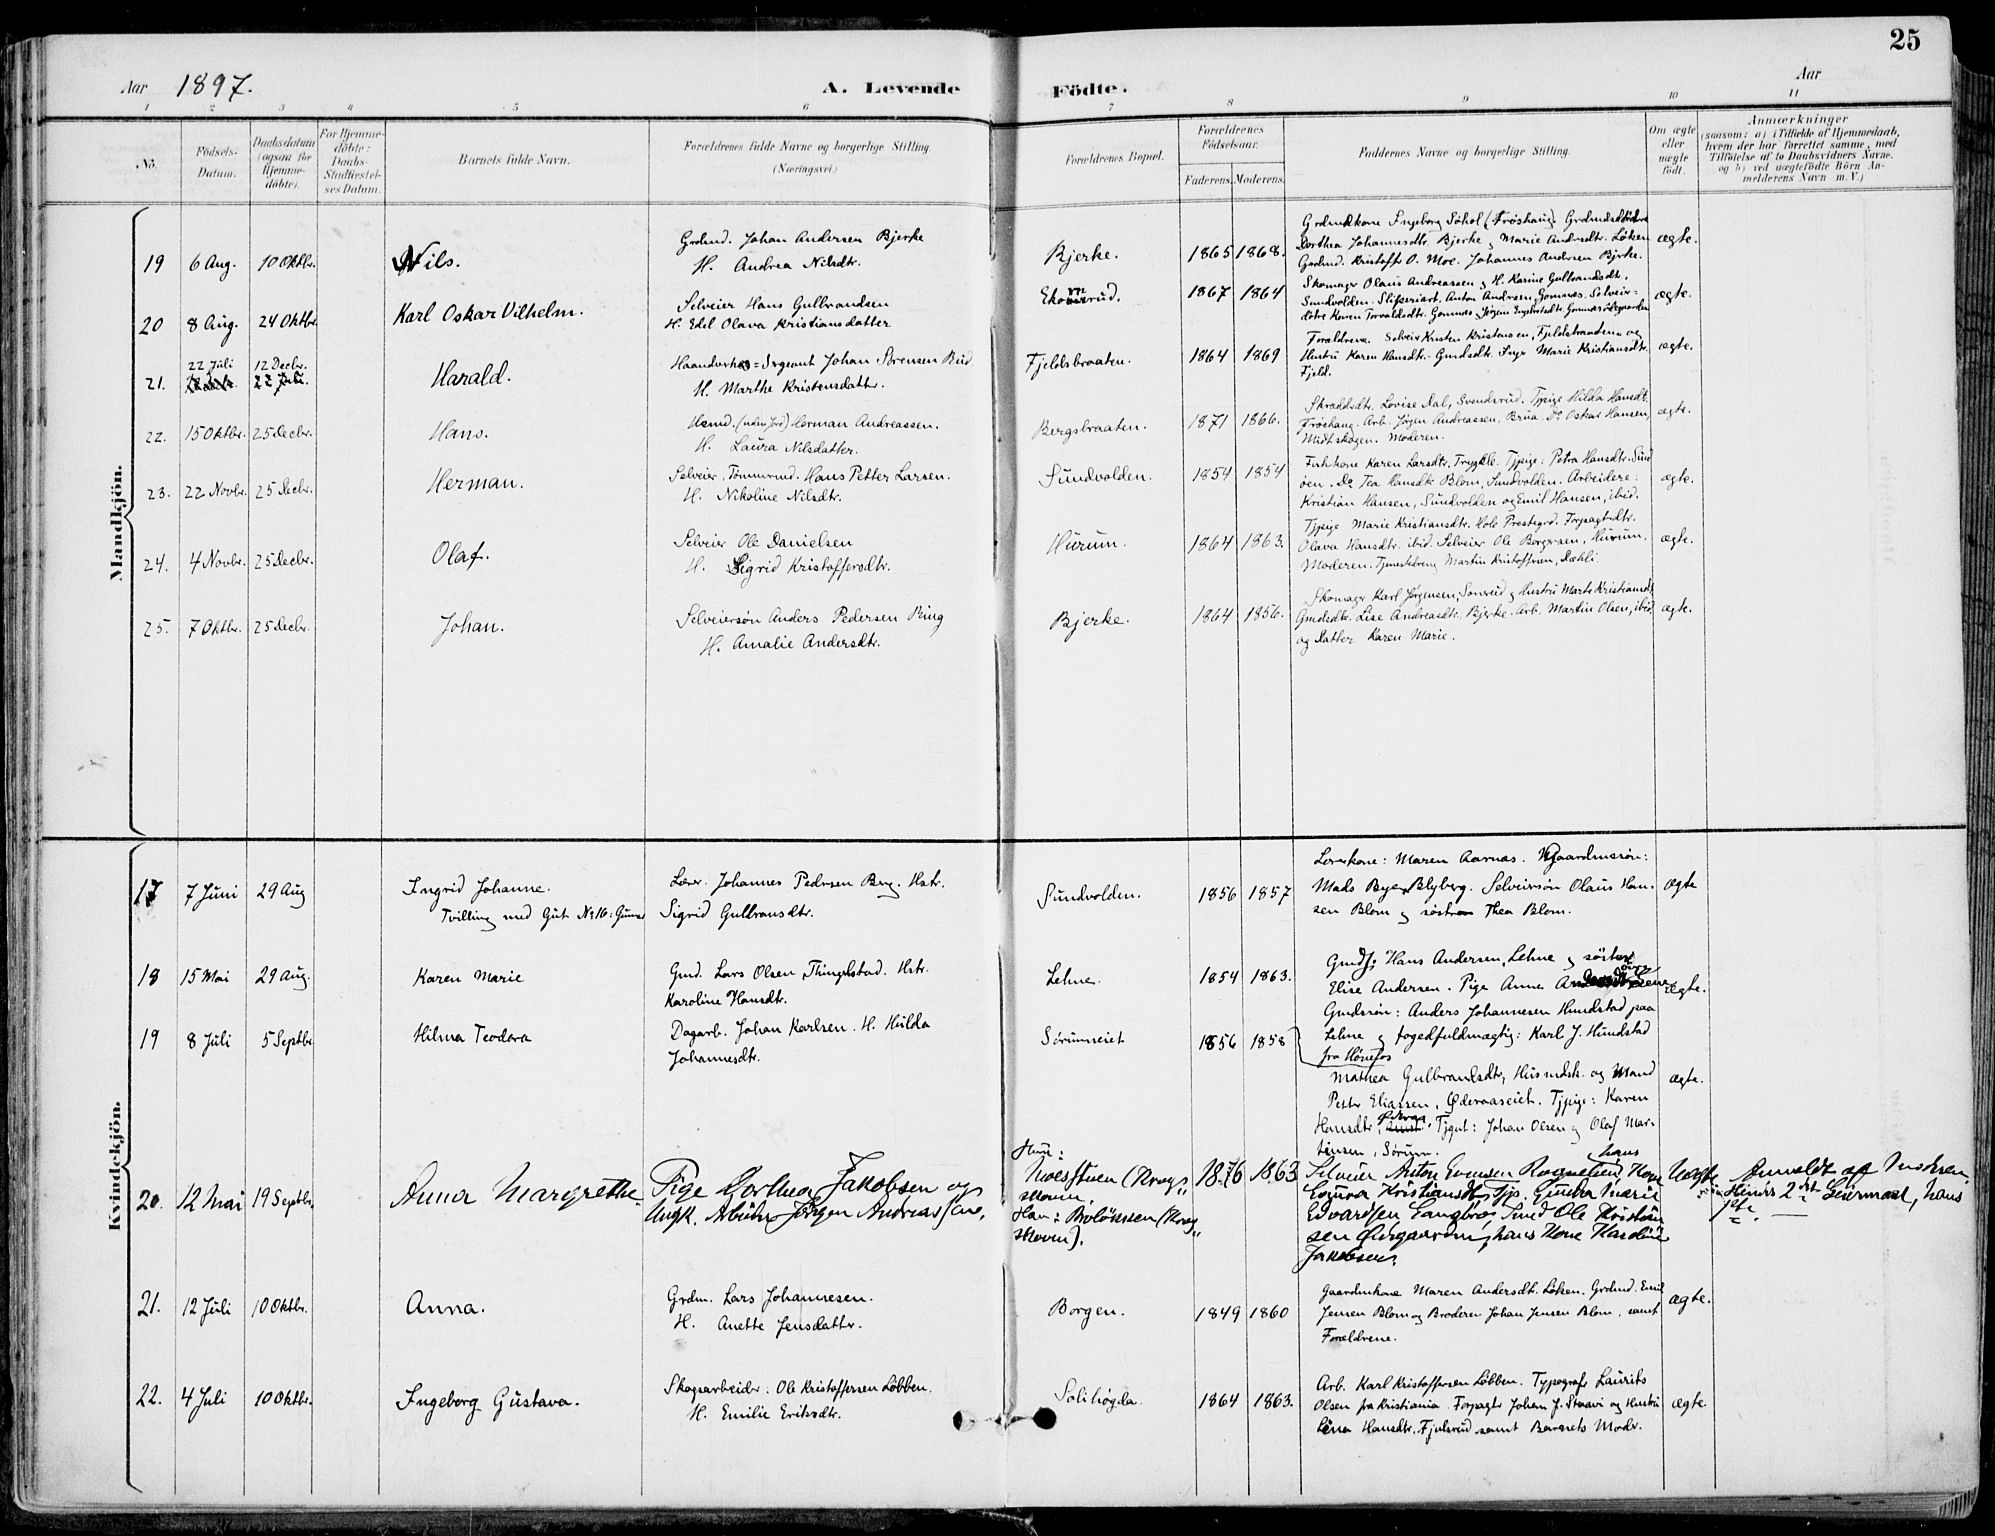 25
Aar 1897. A. Levende Födte. Aar
1 2 3 4 5 6 7 8 9 10 11
No. Födsels-Datum. Daabsdatum (ogsaa for Hjemme-döbte). For Hjemme-döbte: Daabs-Stadfæstel-ses Datum. Barnets fulde Navn. Forældrenes fulde Navne og borgerlige Stilling. (Næringsvei.) Forældrenes Bopæl. Forældrenes Födselsaar. Faderens. Moderens. Faddernes Navne og borgerlige Stilling. Om ægte eller uægte födt. Anmærkninger
(saasom: a) i Tilfælde af Hjemmedaab,
hvem der har forrettet samme, med
Tilföielse af to Daabsvidners Navne,
og b) ved uægtefödte Börn An-
melderens Navn m. V.)
Mandkjön.
19 6 Aug. 10 Oktbr. Nils.
Grdmd. Johan Andersen Bjerke
H. Andrea Nilsdtr.
Bjerke. 1865 1868.
Grdmdkone Ingeborg Søhol (Frøshaug).
Dorthea Johannesdtr. Bjerke & Marie Andersdtr. Løken
Grdmd. Kristoffr O. Moe. Johannes Andersen Bjerke.
ægte.
20 8 Aug. 24 Oktbr. Karl Oskar Vilhelm.
Selveier Hans Gulbrandsen
H. Edel Olava Kristiansdatter
1867 1864
Skomager Olaus Andreassen & H. Karine Gulbrandsdtr.
Sundvolden. Sliperiarb. Anton Andersen, Gomnæs. Selveier-
døtre Karen Torvaldsdtr. Gomnæs
ægte.
22 Juli 12 Decbr.
21. 22 Juli. Harald.
Sergeant Johan Sørensen Bud
H. Marthe Kristensdatter.
Fjeldsbraaten. 1864 1869
Forældrene. Selveier Kristen Kristensen, Fjeldsbraaten og
Hustru Karen Hansdtr. Gmdsdtr. Marie Kristiansdtr.
Fjeld.
ægte.
22. 15 Oktbr. 25 Decbr. Hans.
Husmd. (uden Jord) Herman Andreassen.
H. Laura Nilsdatter.
Bergsbraaten. 1871 1866.
Lovise Dal, Svenderud. Tjpige Hilda Hansdt.
Frøshaug. Arb. Jørgen Andreassen, Brua. Do Oskar Hansen,
Midtskogen. Moderen.
ægte.
23. 22 Novbr. 25 Decbr. Herman.
Selveier, Tømmermd. Hans Petter Larsen.
H. Nikoline Nilsdtr.
Sundvolden. 1854 1854
Karen Larsdtr, Trygkle. Tjpige: Petra Hansdtr. Sund
øen. Do Tea Hansdtr Blom, Sundvolden. Arbeidere:
Kristian Hansen, Sundvolden og Emil Hansen, ibid.
ægte.
24. 4 Novbr. 25 Decbr. Olaf.
Selveier Ole Danielsen
H. Sigrid Kristoffersdtr.
Hurum. 1864 1863.
Tjpige Marie Kristiansdtr. Hole Prestegrd. Forpagtdtr.
Olava Hansdtr ibid. Selveier Ole Borgersen, Hurum.
Moderen. Tjenestedreng Martin Kristoffersen, Dæhli.
ægte.
25. 7 Oktbr. 25 Decbr. Johan.
Selveiersøn Anders Pedersen Ring
H. Amalie Andersdtr.
Bjerke. 1864 1856.
Skomager Karl Jørgensen, Sonrud & Hustru Marte Kristiansdt
Gmdsdtr. Lise Andreasdtr. Bjerke. Arb. Martin Olsen, ibid,
og Datter Karen Marie.
ægte.
Kvindekjön.
17 7 Juni 29 Aug Ingrid Johanne.
Tvilling med Gut No 16: Gunar
Lærer. Johannes Pedersen Berg. Hstr.
Sigrid Gulbransdtr.
Sundvolden. 1856 1857
Lærerkone: Maren Aarnæs. Gaardmssøn:
Mads Bye Blyberg. Selveirsøn Olaus Han-
sen Blom & søstren Thea Blom.
ægte
18 15 Mai 29 Aug. Karen Marie
Gmd. Lars Olsen Thingelstad. Hstr.
Karoline Hansdtr.
Lehne. 1854 1863.
Gmds: Hans Andersen, Lehne & søster
Elise Andersen. Pige Anne
Gmdssøn: Anders Johannesen Hundstad paa
Lehne & fogedfuldmægtig: Karl J. Hundstad
fra Hønefos
ægte.
19 8 Juli 5 Septbr Hilma Teodora
Dagarb. Johan Karlsen. H. Hulda
Johannesdtr.
Sørumseiet 1856 1858
Mathea Gulbrandsdtr, Husmdsk. og Mand
Petter Eliassen, Øderaaseiet. Tjpige: Karen
Hansdtr, Tjgut: Johan Olsen & Olaf Mar-
tinsen, Sørum.
ægte.
20. 12 Mai 19 Septbr. Anna Margrethe
Pige Dorthea Jakobsen og
Ungk. Arbeider Jörgen Andreassen.
Hun:
Moesstuen (Krog-
skoven,
Han: Bråløkkken (Krog-
skoven).
1876 1863
Selveier Anton Evensen Rognerud, hans Kone
Laura Kristiansdtr, Tjp. Gunda Marie
Edvardsen Langbro, Smed Ole Kristian
sen Øvregaarden, hans Kone Karoline
Jakobsen.
Uægte
Anmeldt af Moderen.
Hendes 2det Leiermaal, hans
21. 12 Juli 10 Oktbr. Anna.
Grdm. Lars Johannesen.
H. Anette Jensdatter.
Borgen. 1849 1860
Gaardmkone Maren Andersdt. Løken. Grdmd. Emil
Jensen Blom og Broderen Johan Jensen Blom, samt
Forældrene.
ægte.
22. 4 Juli 10 Oktbr. Ingeborg Gustava.
Skogsarbeider: Ole Kristoffersen Løbben.
H. Emilie Eriksdtr.
Solihøgda. 1864 1863.
Arb. Karl Kristoffersen Løbben. Typograf Laurits
Olsen fra Kristiania. Forpagtr Johan J. Staavi og Hustru
Lena Hansdtr. Fjulsrud samt Barnets Moder.
ægte.